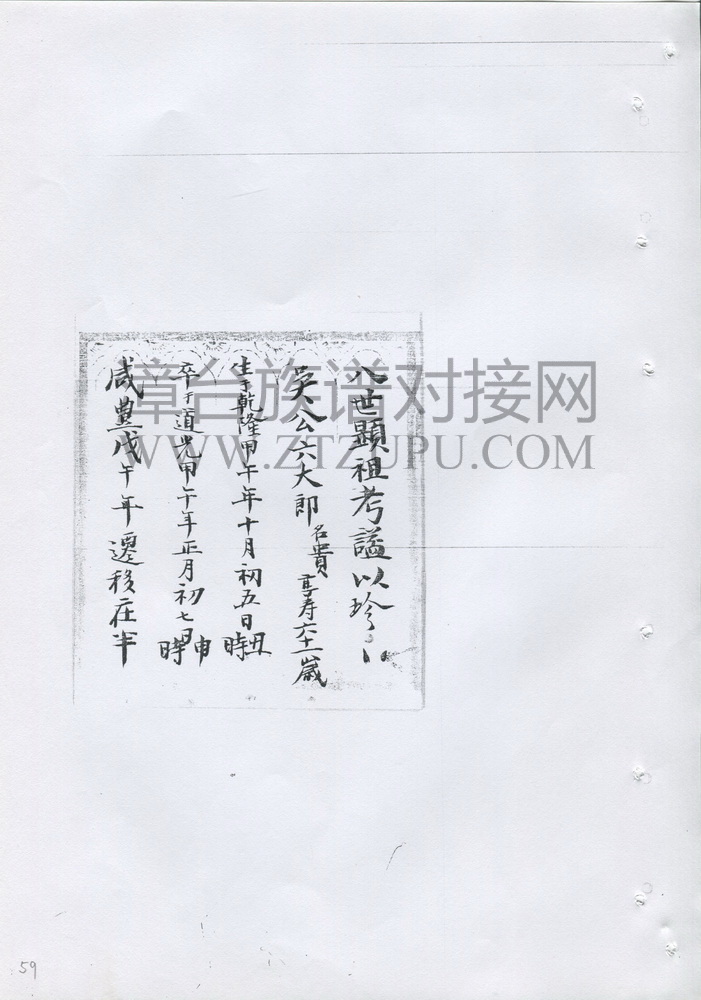 八世顯祖考謚以珍
吴公六大郎名貴享寿六十一歲
生于乾隆甲午年十月初五日丑時
卒于道光甲午年正月初七日申時
咸豊戊午年遷移在半
漳台族谱对接网
WWW.ZTZUPU.COM
59